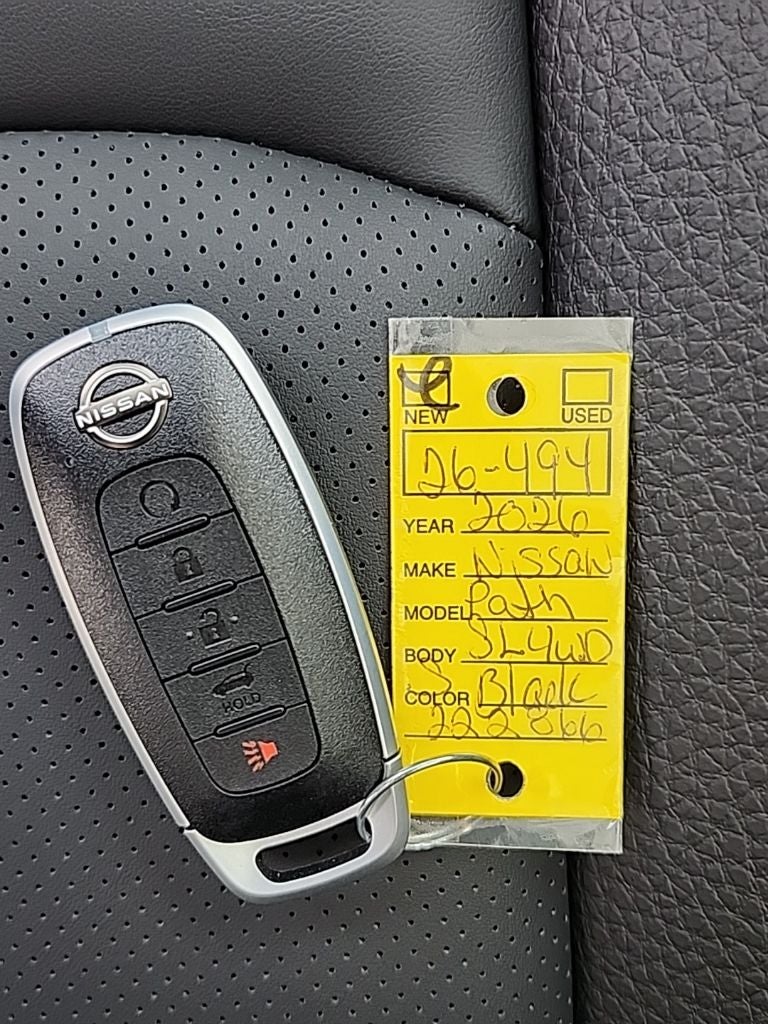 NISSAN
HOLD
NEW USED
26-494
YEAR 2026
MAKE Nissan
MODEL Path
BODY SL4WD
COLOR S Black
222866